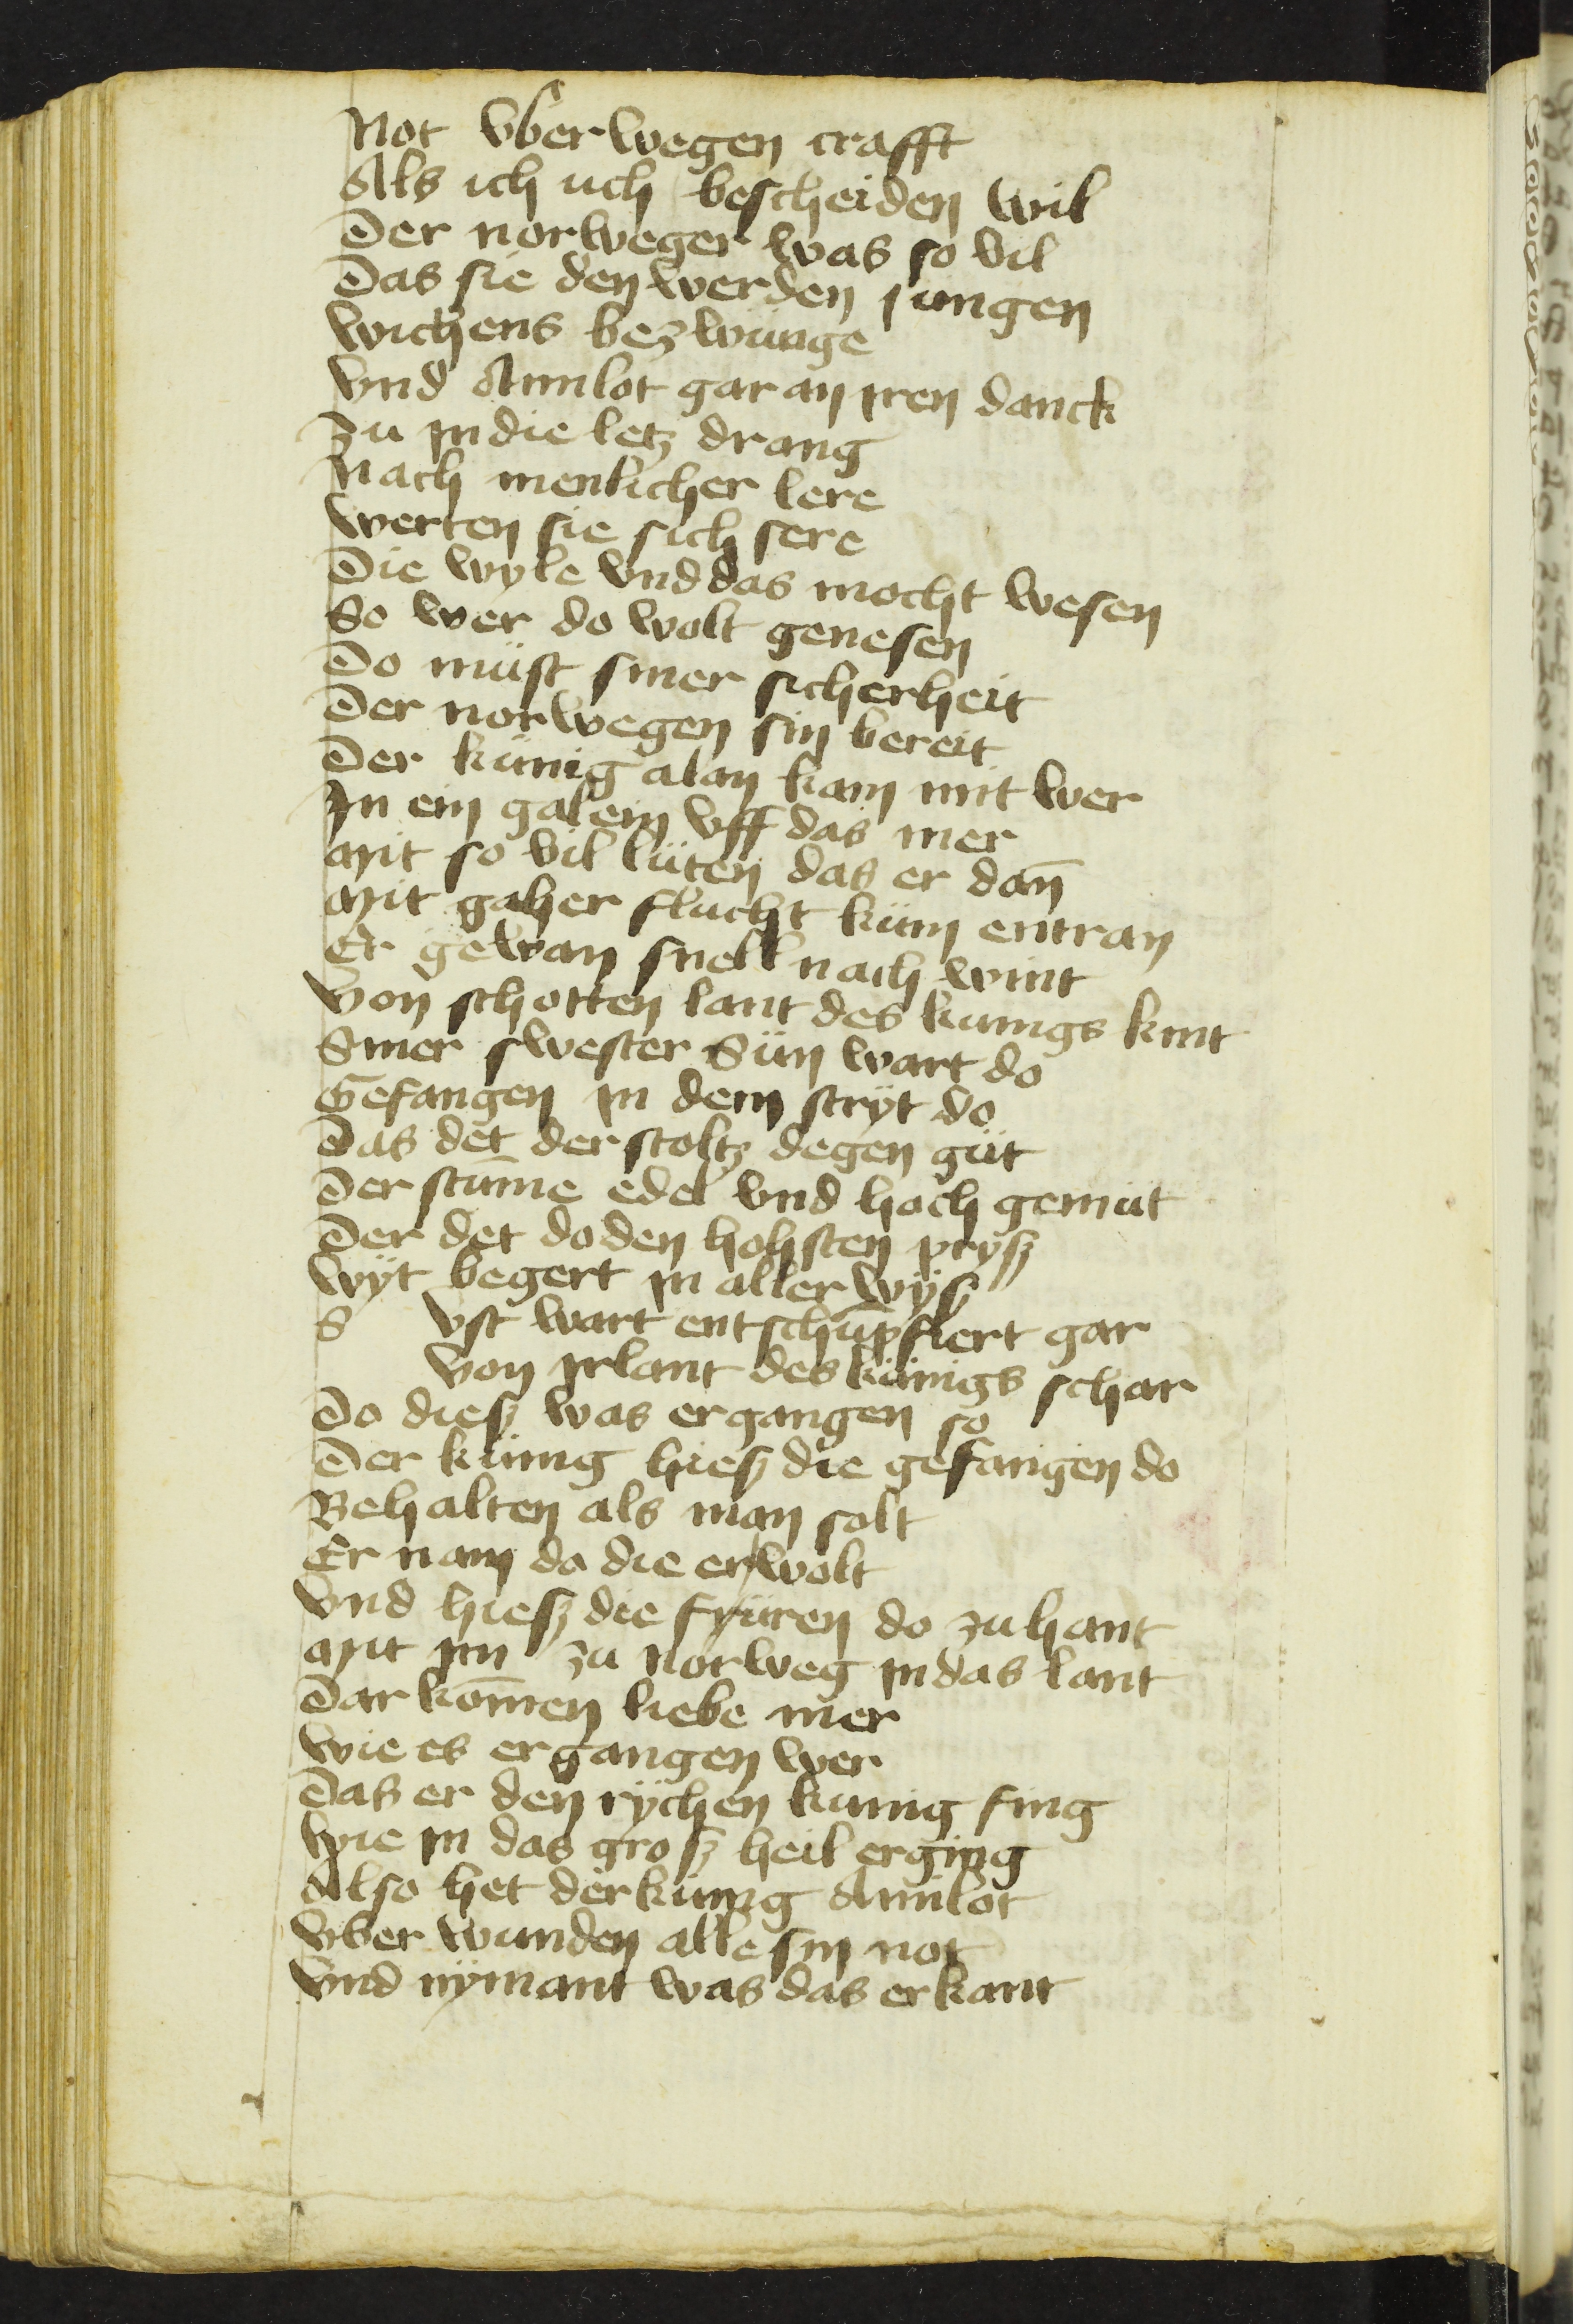 Not vber wegen crafft
Als ich uch bescheiden wil
Der norweger was so vil
Das sie den werden jungen
wichens bezwünge
vnd Amilot gar an iren danck
Zu in die letz drang
Nach menlicher lere
werten sie sich sere
Die wyle vnd das mocht wesen
So wer do wolt genesen
Do müst siner sicherheit
Der norwegen sin bereit
Der künig alan kam mit wer
In ein galein vff das mer
Mit so vil lüten das er dañ
Mit gaher flucht küm entran
Er gewan snell nach wint
von schotten lant des kunigs kint
Siner swester Sün wart do
Gefangen in dem strÿt do
Das det der stoltz degen güt
Der stum̄e edel vnd hoch gemüt
Der det do den hohsten prÿsz
wÿt begert in aller wÿsz
S vst wart entschūpfiert gar
von irlant des künigs schar
Do diesz was ergangen so
Der künig hiesz die gefangen do
Behalten als man solt
Er nam do die er wolt
vnd hiesz die füren do zu hant
Mit im zu norweg in das lant
Dar kom̄en liebe mer
wie es ergangen wer
Das er den rÿchen kunig fing
wie in das grosz heil erging
Also het der künig Amilot
vber wunden alle sin not
vnd nÿmant was das erkant